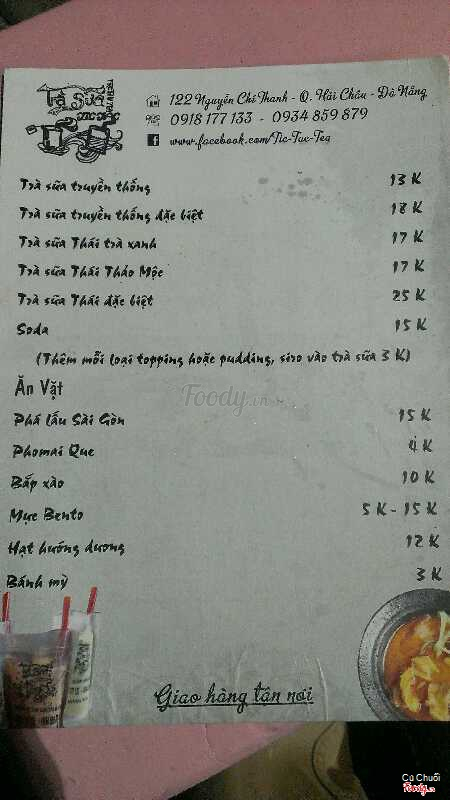 Trà Sữa
122 Nguyễn Chí Thanh - Q. Hải Châu - Đà Nẵng
0918 177 133 - 0934 859 879
www.facebook.com/Tic-Tac-Tea
Trà sữa truyền thống 13 K
Trà sữa truyền thống đặc biệt 18 K
Trà sữa Thái trà xanh 17 K
Trà sữa Thái Thảo Mộc 17 K
Trà sữa Thái đặc biệt 25 K
Soda 15 K
(Thêm mỗi loại topping hoặc pudding, siro vào trà sữa 3 K)
Ăn Vặt
Foody.vn
Phá lấu Sài Gòn 15 K
Phomai Que 4 K
Bắp xào 10 K
Mực Bento 5 K - 15 K
Hạt hướng dương 12 K
Bánh mỳ 3 K
Giao hàng tận nơi
Cu Chuối
Foody.vn